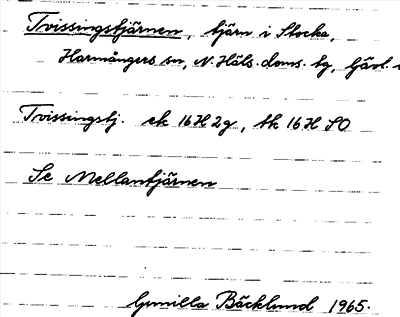 Tvissingstjärnen, tjärn i Stocka,
Harmångers sn, N. Häls. doms. tg, Gävl.
Tvissingstj. ek 16H2g, tk 16H SO
Se Mellantjärnen
Gunilla Bäcklund 1965.